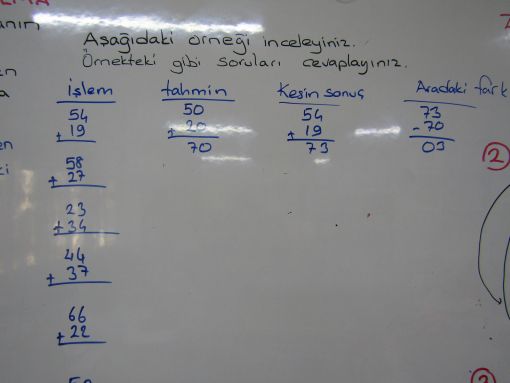 anın
Aşağıdaki örneği inceleyiniz.
Örnekteki gibi soruları cevaplayınız.
en
a
en
işlem tahmin Kesin sonuç Aradaki fark
54 50 54 73
+ 19 + 20 + 19 - 70
70 73 03
2
58
+ 27
23
+ 34
44
+ 37
66
+ 22